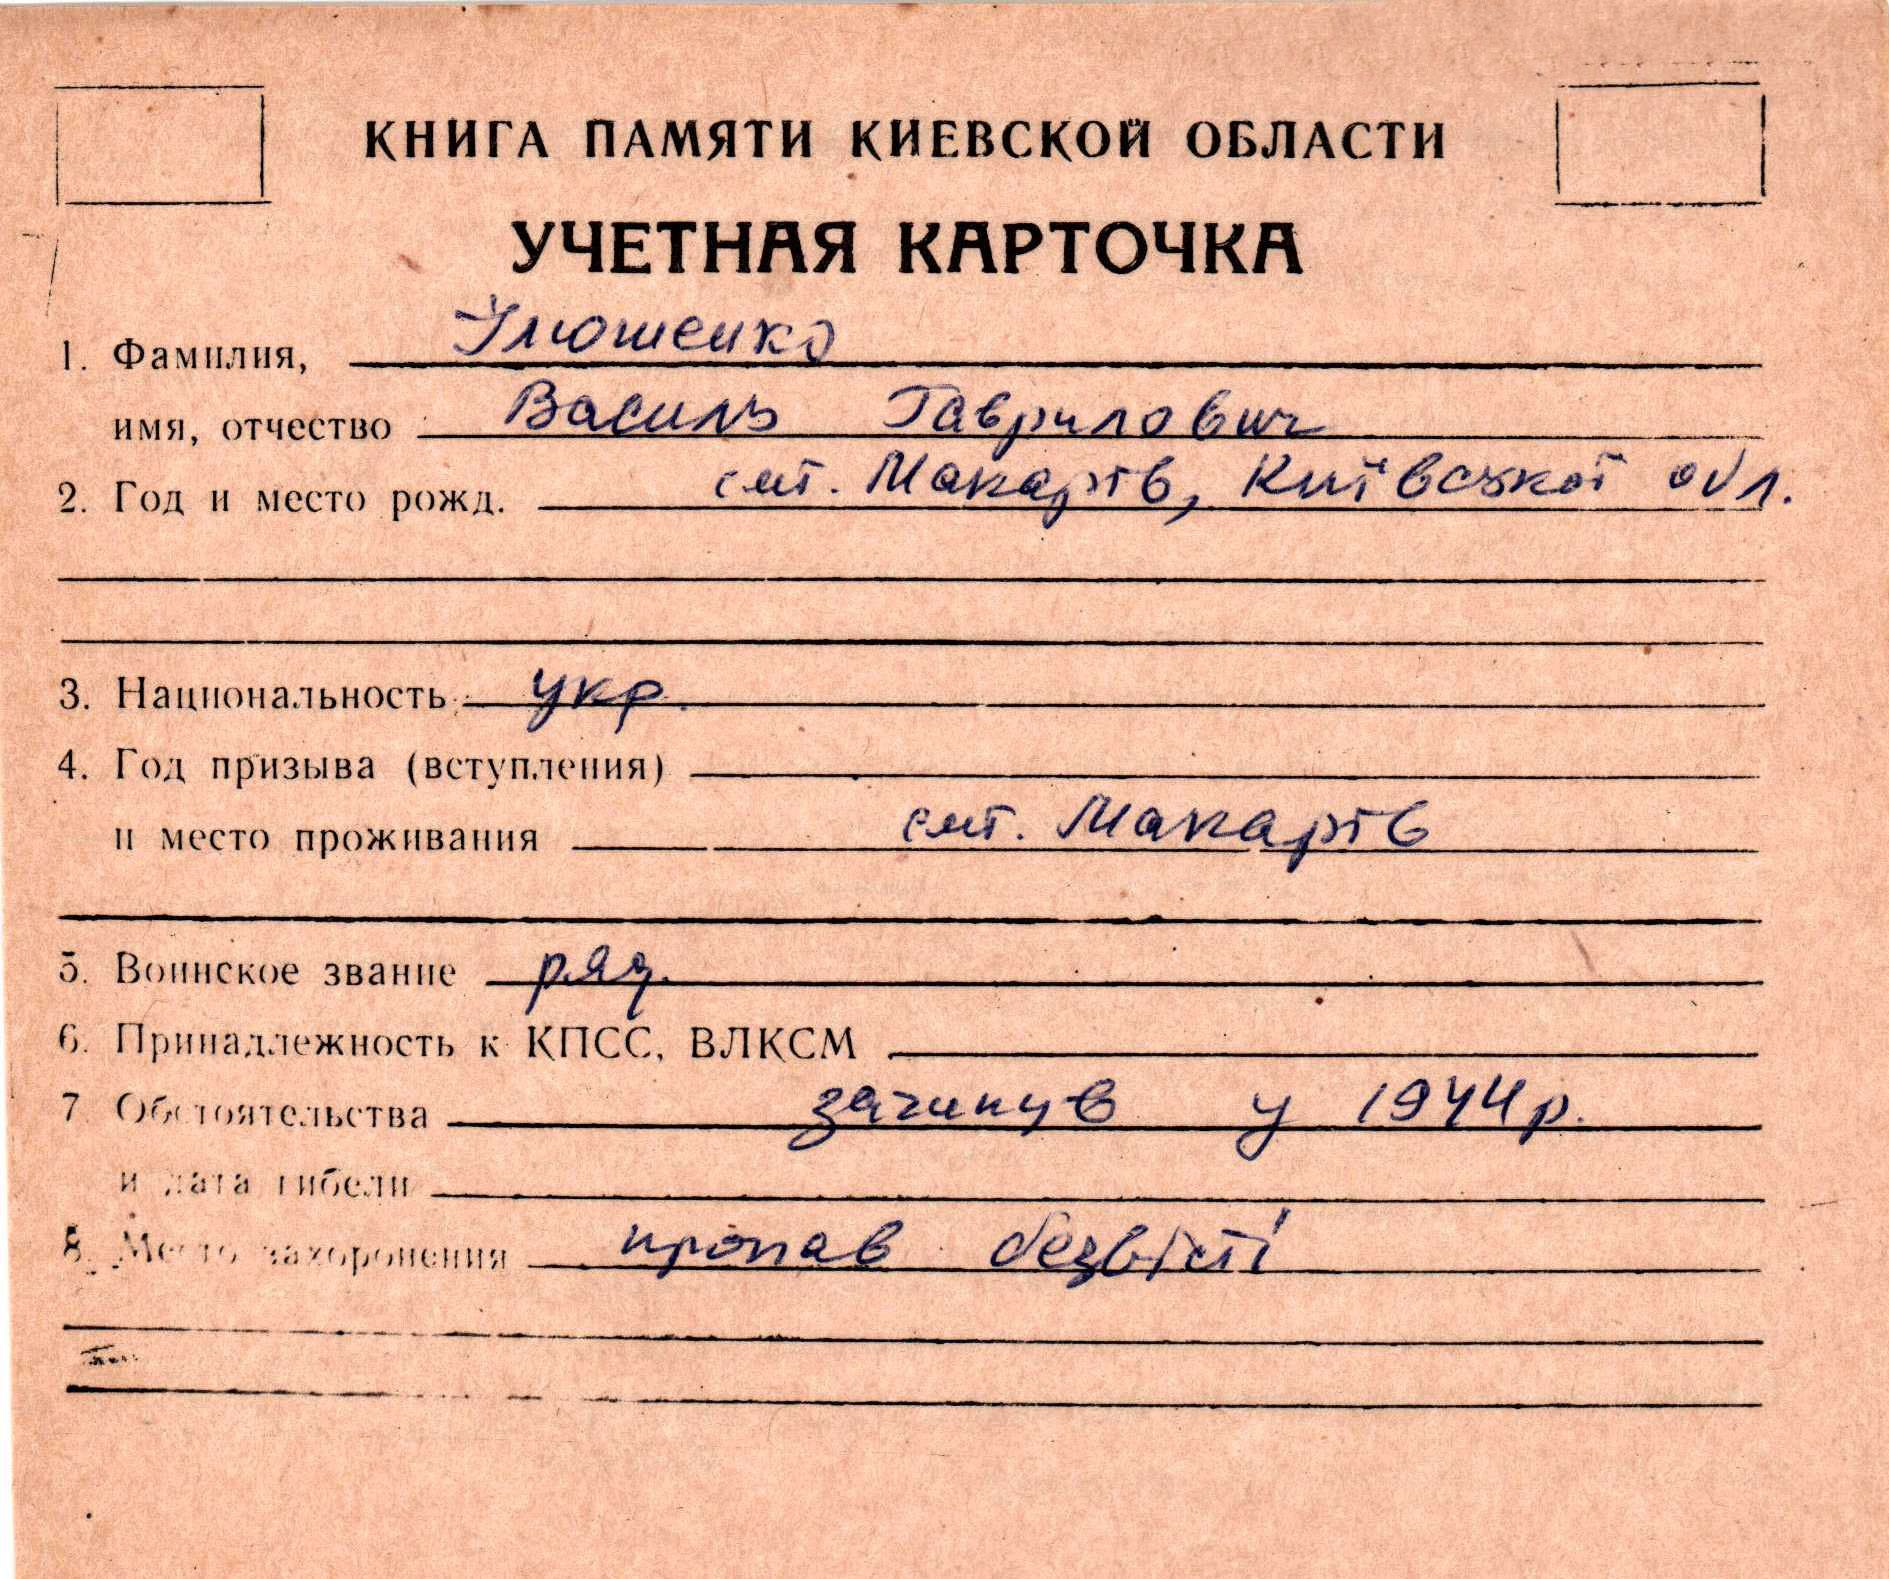 КНИГА ПАМЯТИ КИЕВСКОЙ ОБЛАСТИ
УЧЕТНАЯ КАРТОЧКА
1. Фамилия, Улюшенко
имя, отчество Василь Гаврилович
2. Год и место рожд. смт. Макарів, Київської обл.
3. Национальность укр.
4. Год призыва (вступления)
и место проживания смт. Макарів
5. Воинское звание ряд.
6. Принадлежность к КПСС, ВЛКСМ
7 Обстоятельства загинув у 1944 р.
и дата гибели
8. Место захоронения пропав безвісті